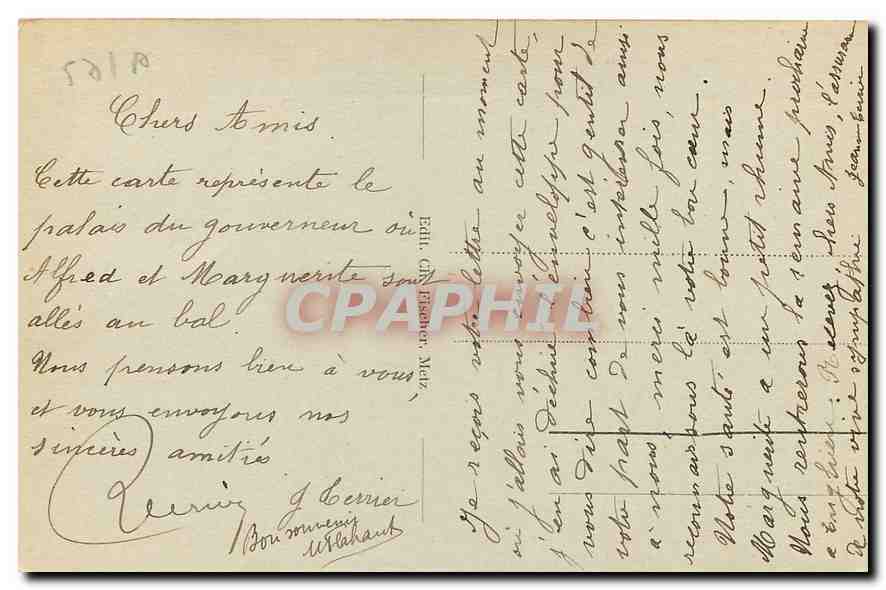 Chers Amis
Cette carte représente le
palais du gouverneur où
Alfred et Marguerite sont
allés au bal.
Nous pensons bien à vous
et vous envoyons nos
sincères amitiés
J Terrier
Bon souvenir
Edit. Ch. Fischer, Metz
CPAPHIL
Je reçois votre lettre au moment
où j'allais vous envoyer cette carte,
j'en ai déchiré l'enveloppe pour
vous dire combien c'est gentil de
votre part de vous intéresser ainsi
à nous, merci mille fois, nous
reconnaissons là votre bon cœur.
Notre santé est bonne, mais
Marguerite a un petit rhume.
Nous rentrerons la semaine prochaine
a Enghien. Recevez chers Amis, l'assurance
de notre vive sympathie